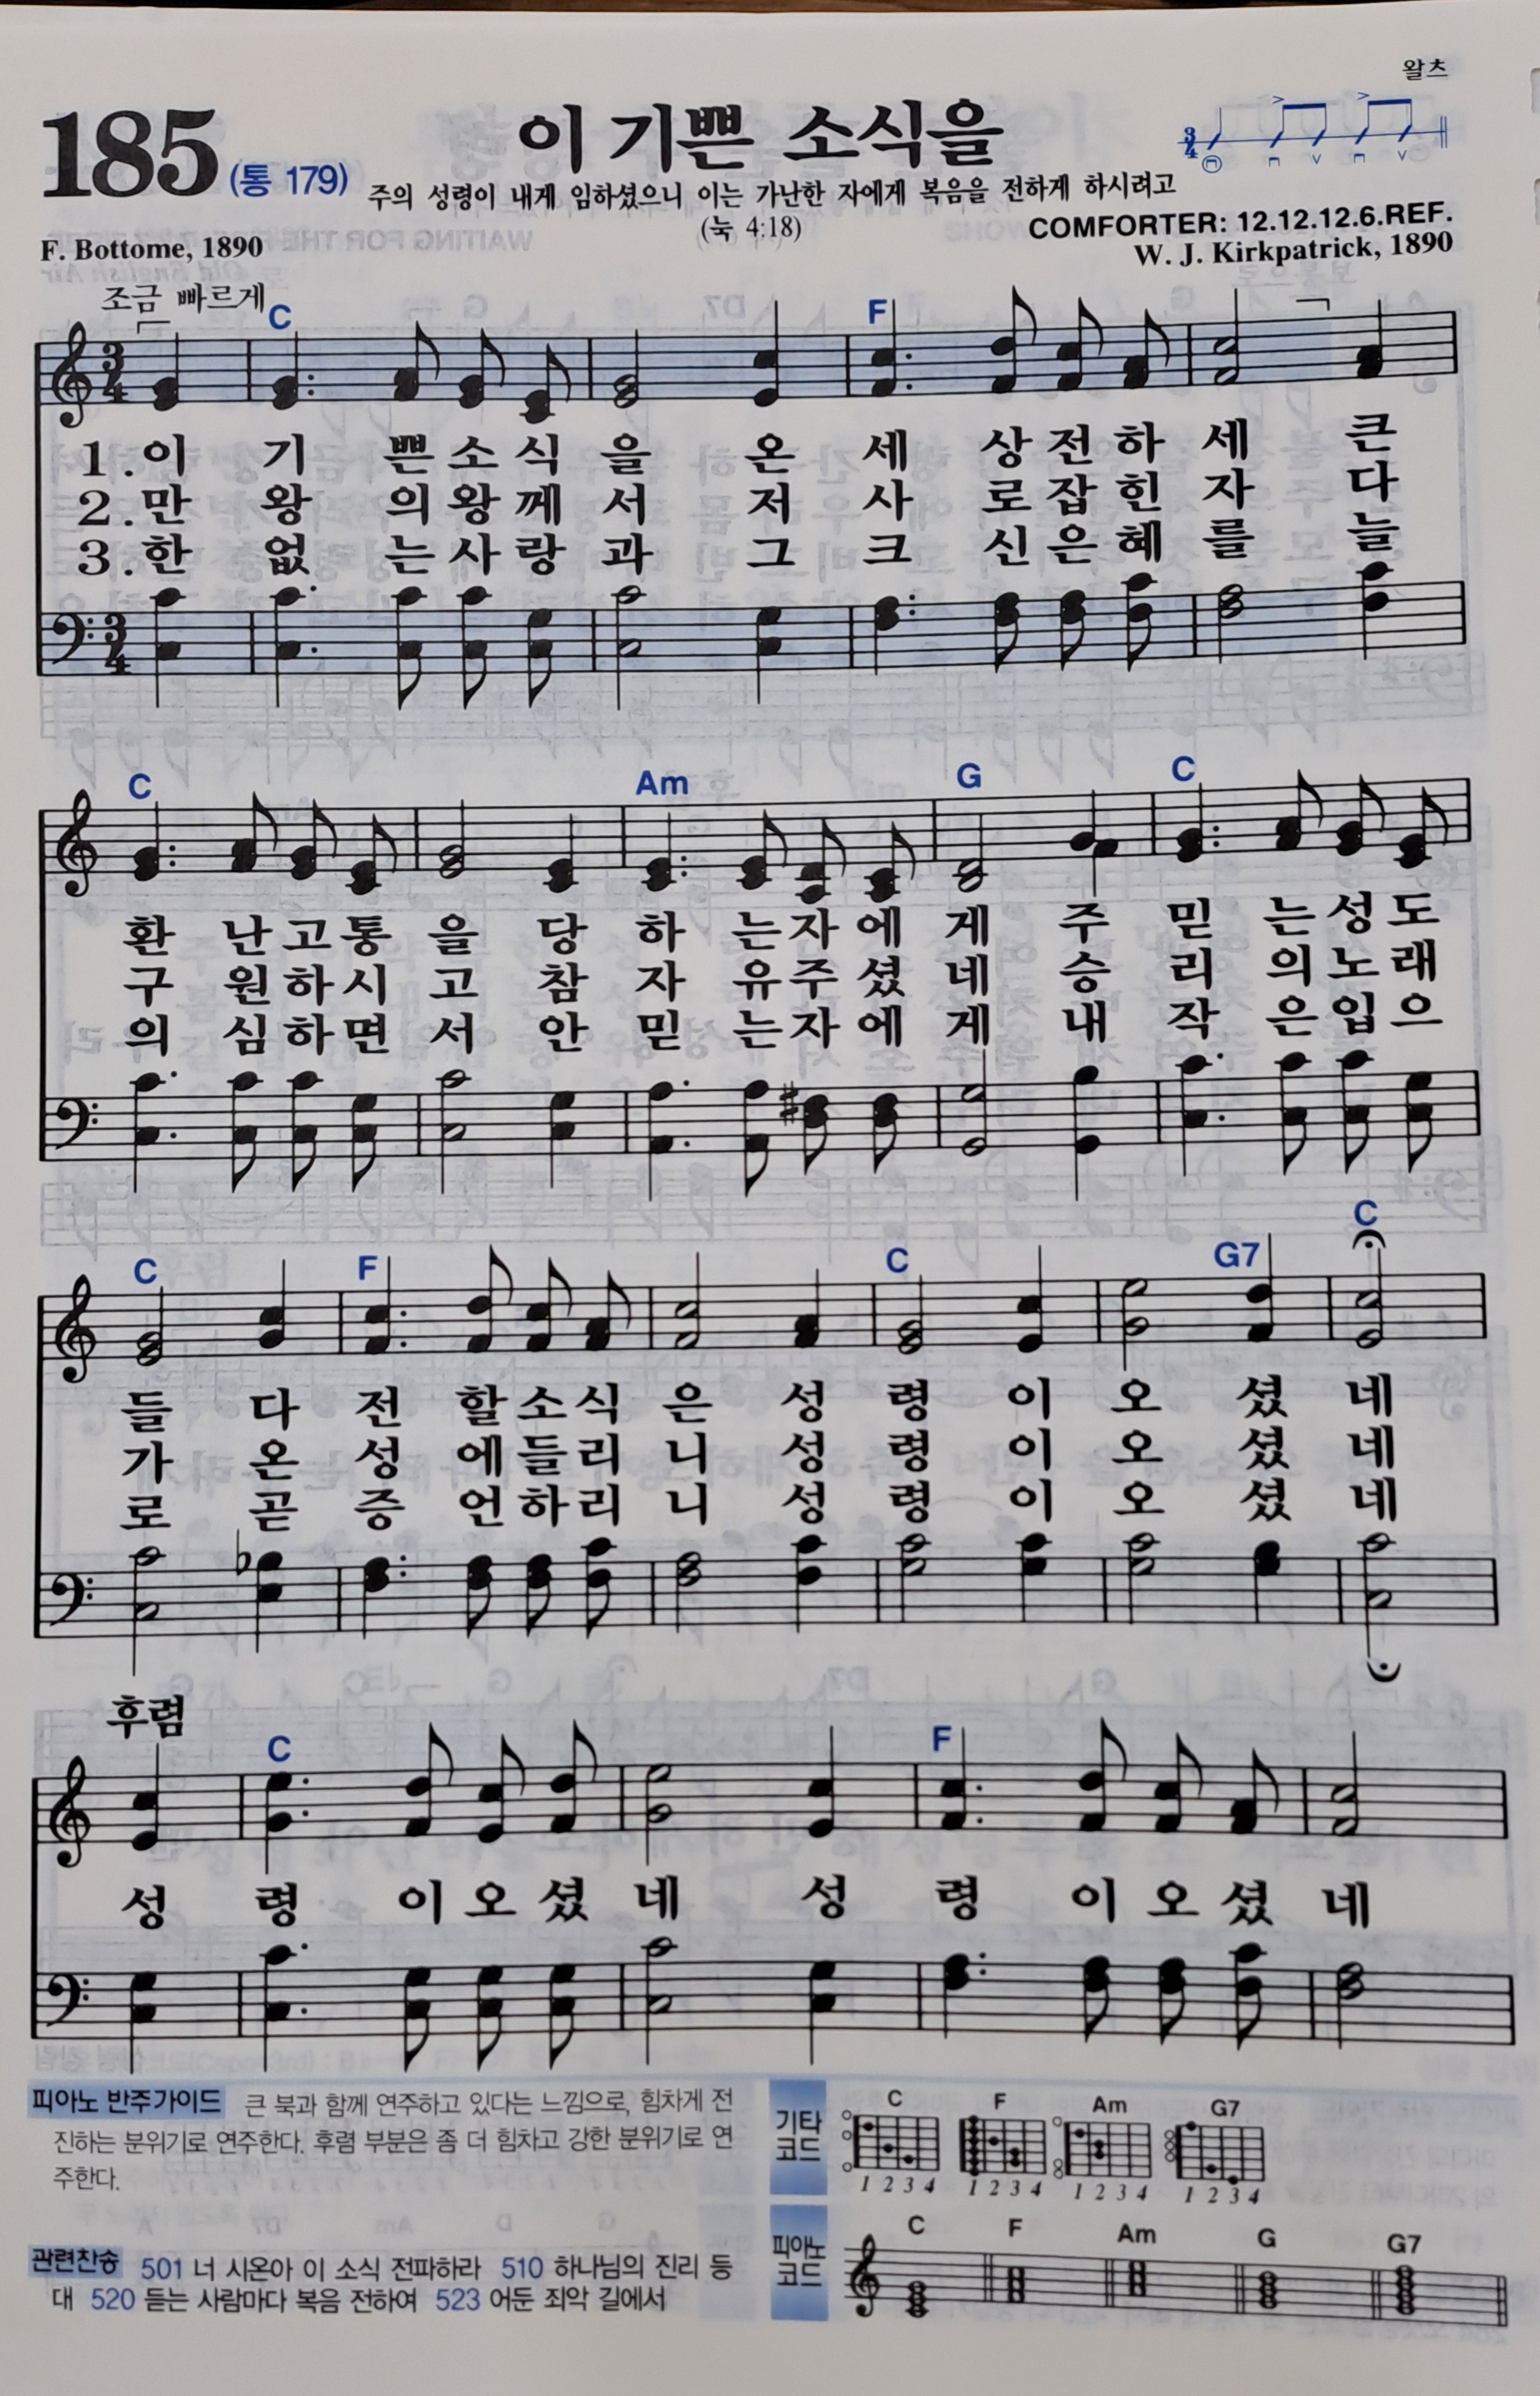 왈츠
185 (통 179) 이 기쁜 소식을
주의 성령이 내게 임하셨으니 이는 가난한 자에게 복음을 전하게 하시려고
(눅 4:18)
COMFORTER: 12.12.12.6.REF.
F. Bottome, 1890
W. J. Kirkpatrick, 1890
조금 빠르게
C F
1. 이 기 쁜 소 식 을 온 세 상 전 하 세 큰
2. 만 왕 의 왕 께 서 저 사 로 잡 힌 자 다
3. 한 없 는 사 랑 과 그 크 신 은 혜 를 늘
C Am G C
환 난 고 통 을 당 하 는 자 에 게 주 믿 는 성 도
구 원 하 시 고 참 자 유 주 셨 네 승 리 의 노 래
의 심 하 면 서 안 믿 는 자 에 게 내 작 은 입 으
C F C G7 C
들 다 전 할 소 식 은 성 령 이 오 셨 네
가 온 성 에 들 리 니 성 령 이 오 셨 네
로 곧 증 언 하 리 니 성 령 이 오 셨 네
후렴
C F
성 령 이 오 셨 네 성 령 이 오 셨 네
피아노 반주가이드 큰 북과 함께 연주하고 있다는 느낌으로, 힘차게 전
진하는 분위기로 연주한다. 후렴 부분은 좀 더 힘차고 강한 분위기로 연
주한다.
관련찬송 501 너 시온아 이 소식 전파하라 510 하나님의 진리 등
대 520 듣는 사람마다 복음 전하여 523 어둔 죄악 길에서
기타
코드
C F Am G7
1 2 3 4 1 2 3 4 1 2 3 4 1 2 3 4
피아노
코드
C F Am G G7